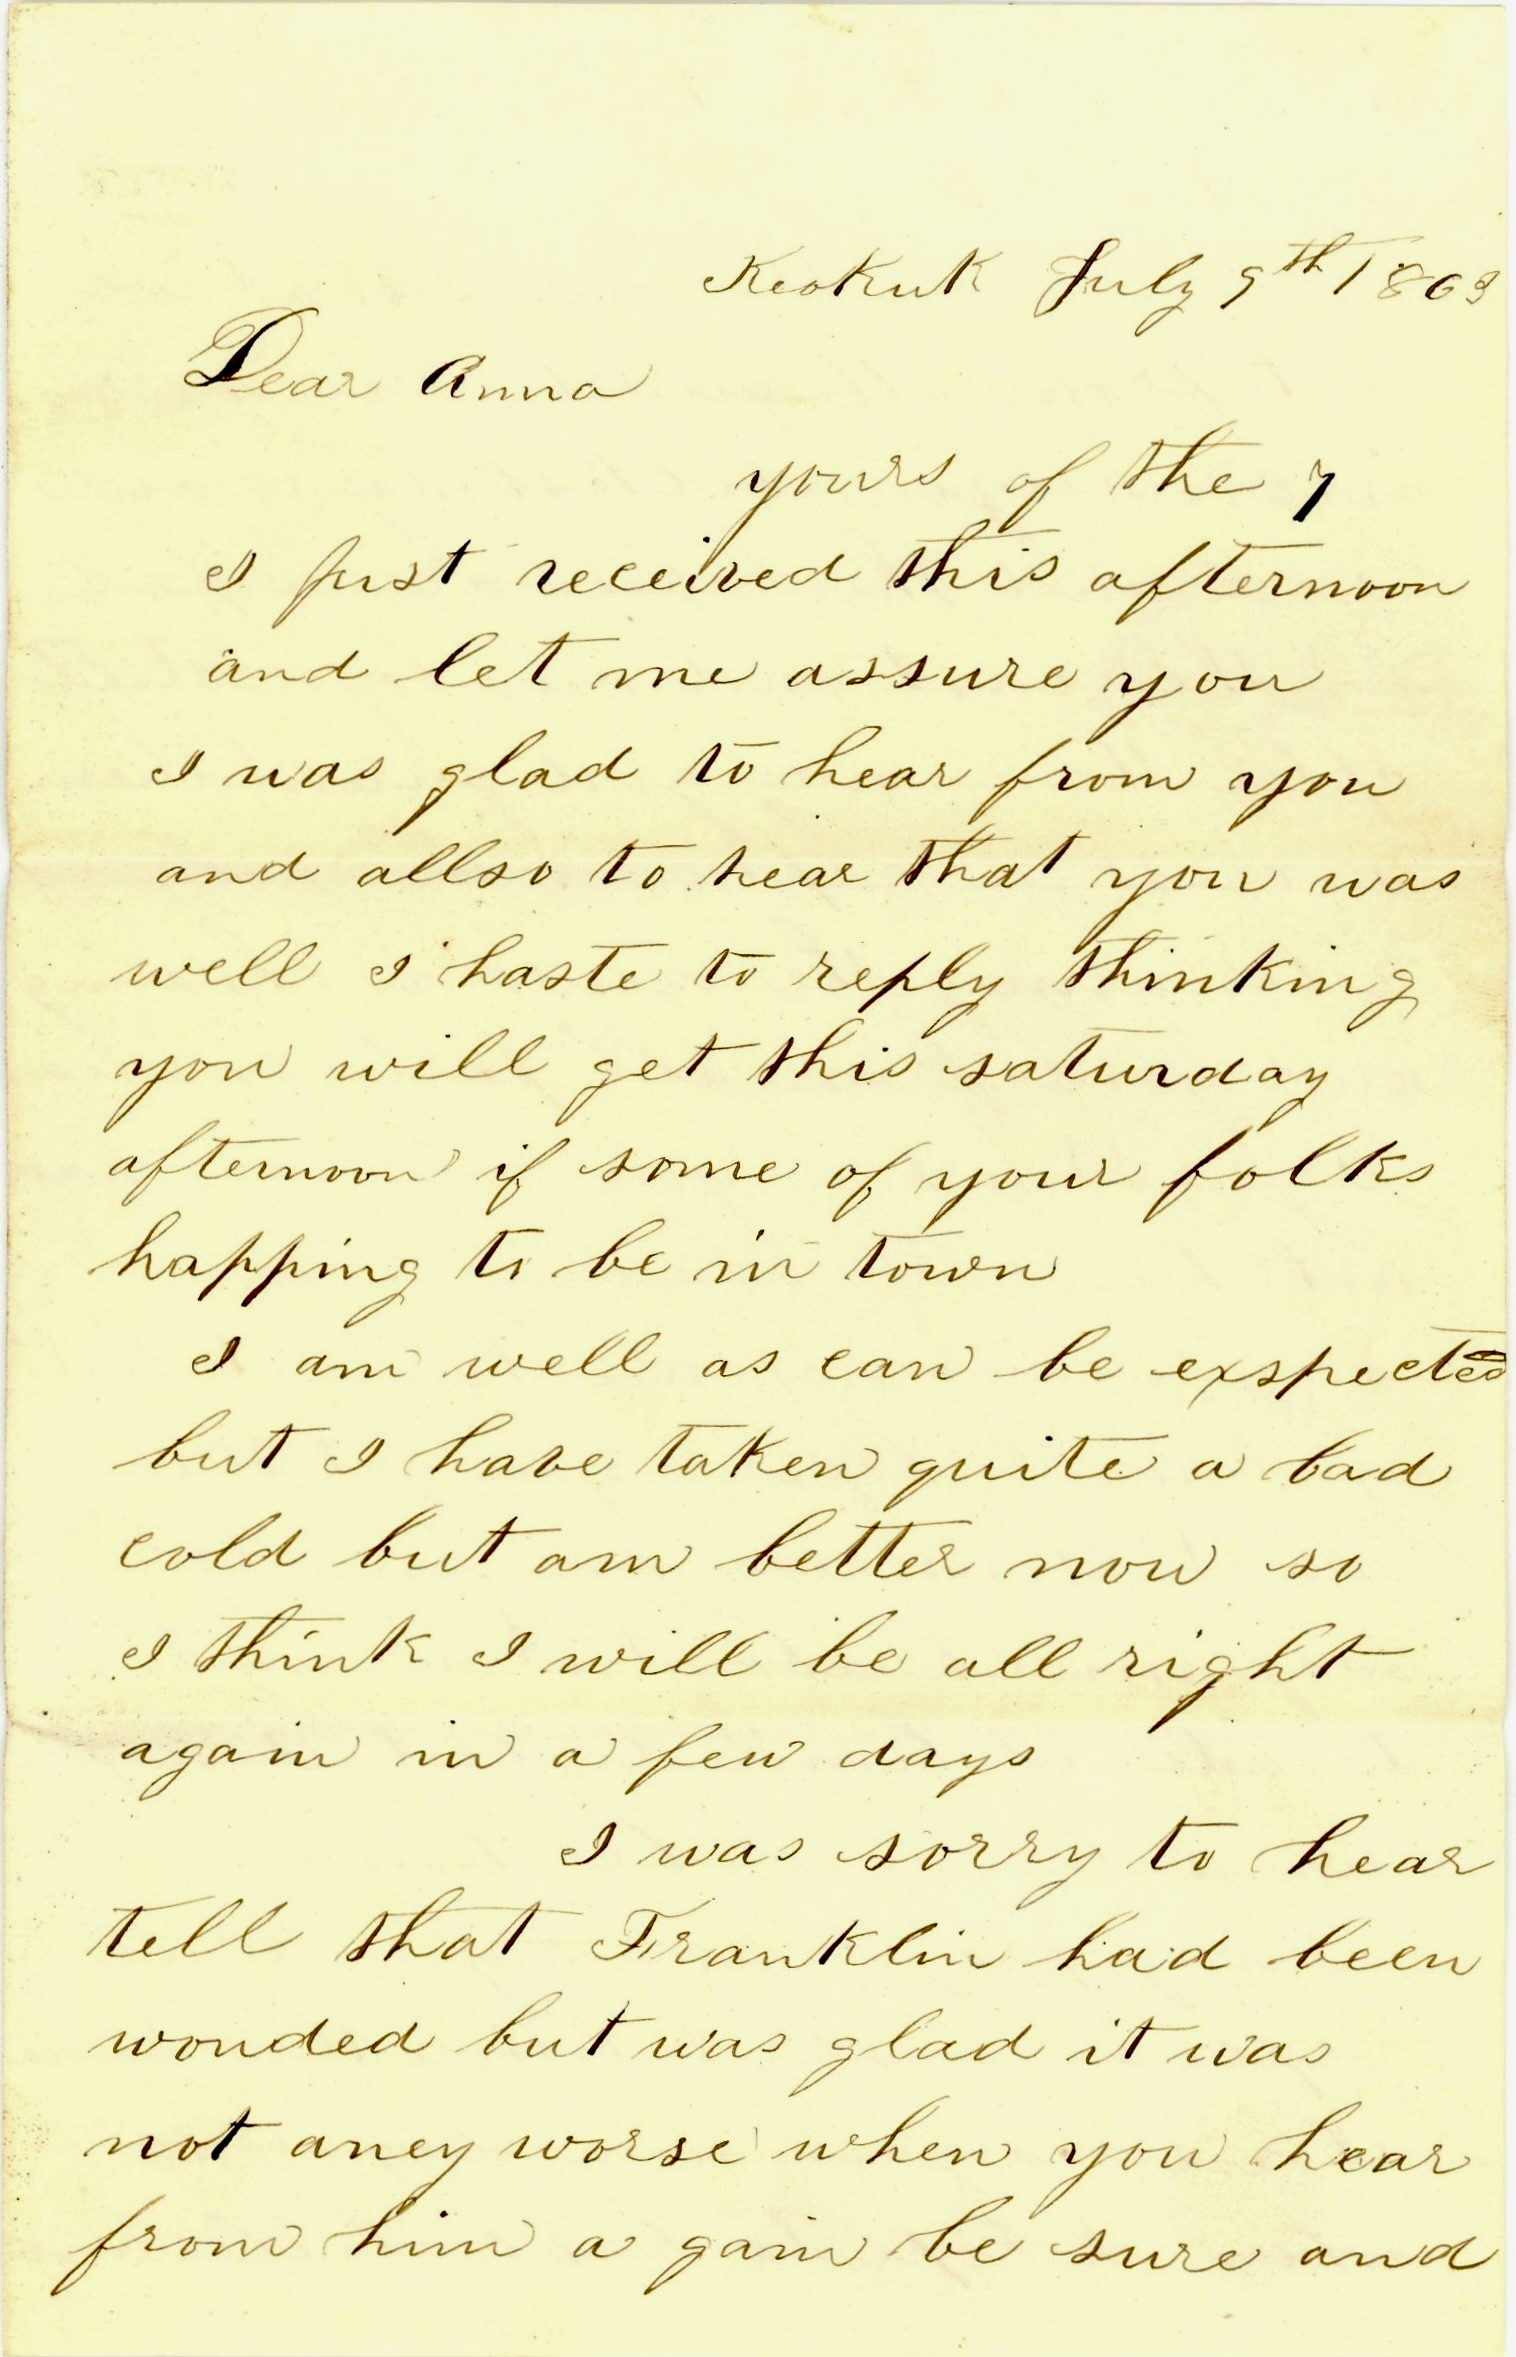 Keokuk July 9th 1863
Dear Anna
yours of the 7
I just received this afternoon
and let me assure you
I was glad to hear from you
and allso to hear that you was
well I haste to reply thinking
you will get this saturday
afternoon if some of your folks
happing to be in town
I am well as can be exspected
but I have taken quite a bad
cold but am better now so
I think I will be all right
again in a few days
I was sorry to hear
tell that Franklin had been
wonded but was glad it was
not aney worse when you hear
from him a gain be sure and